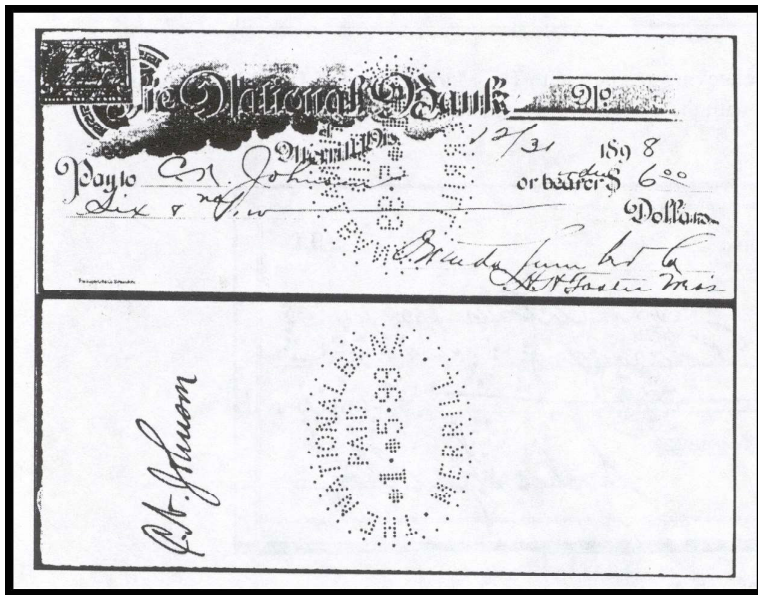 The National Bank No.
of
Merrill, Wis. 12/31 1898
Pay to C. A. Johnson or bearer $ 6 00
Six & no/100 Dollars
Lumber Co
H. H. Foster Treas
C. A. Johnson
THE NATIONAL BANK
PAID
1.5.99
MERRILL